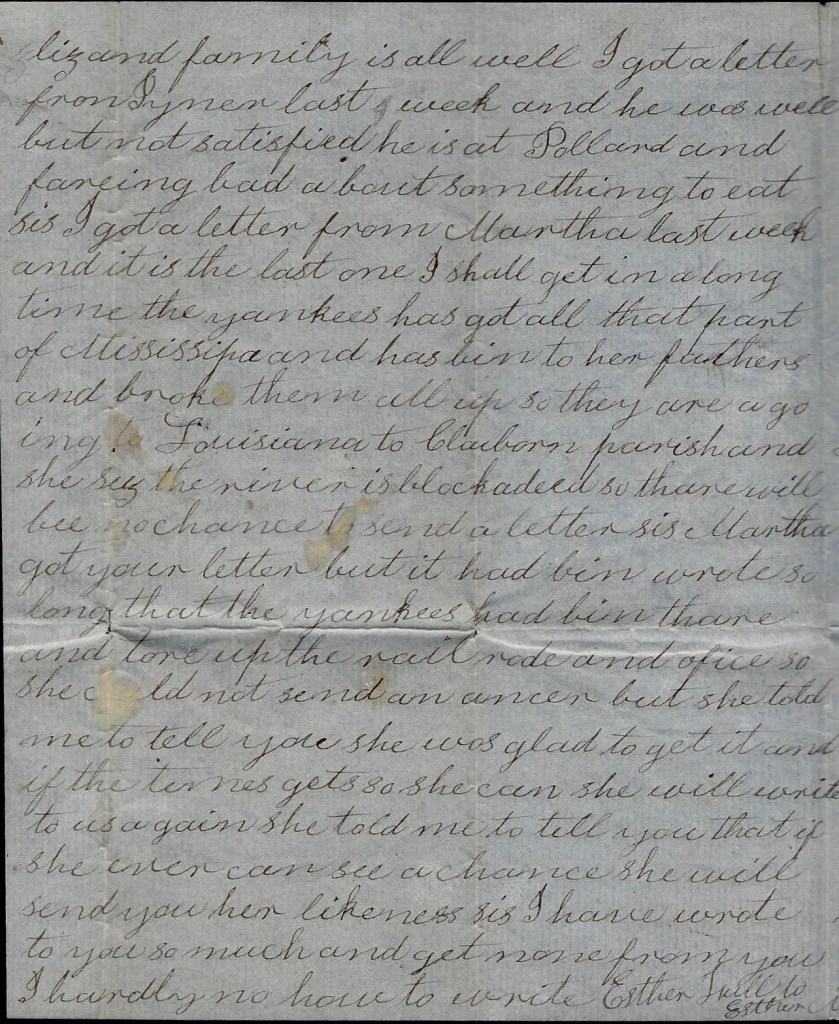 liz and family is all well I got a letter
from Tyner last week and he was well
but not satisfied he is at Pollard and
fareing bad a bout something to eat
sis I got a letter from Martha last week
and it is the last one I shall get in a long
time the yankees has got all that part
of Mississipa and has bin to her fathers
and broke them all up so they are a go
ing to Louisiana to Claiborn parish and
she sez the river is blockadeed so thare will
bee no chance to send a letter sis Martha
got your letter but it had bin wrote so
long that the yankees had bin thare
and tore up the rail rode and ofice so
she c ld not send an ancer but she told
me to tell you she was glad to get it and
if the times gets so she can she will write
to us a gain she told me to tell you that if
she ever can see a chance she will
send you her likeness sis I have wrote
to you so much and get none from you
I hardly no how to write Esther to
Esther